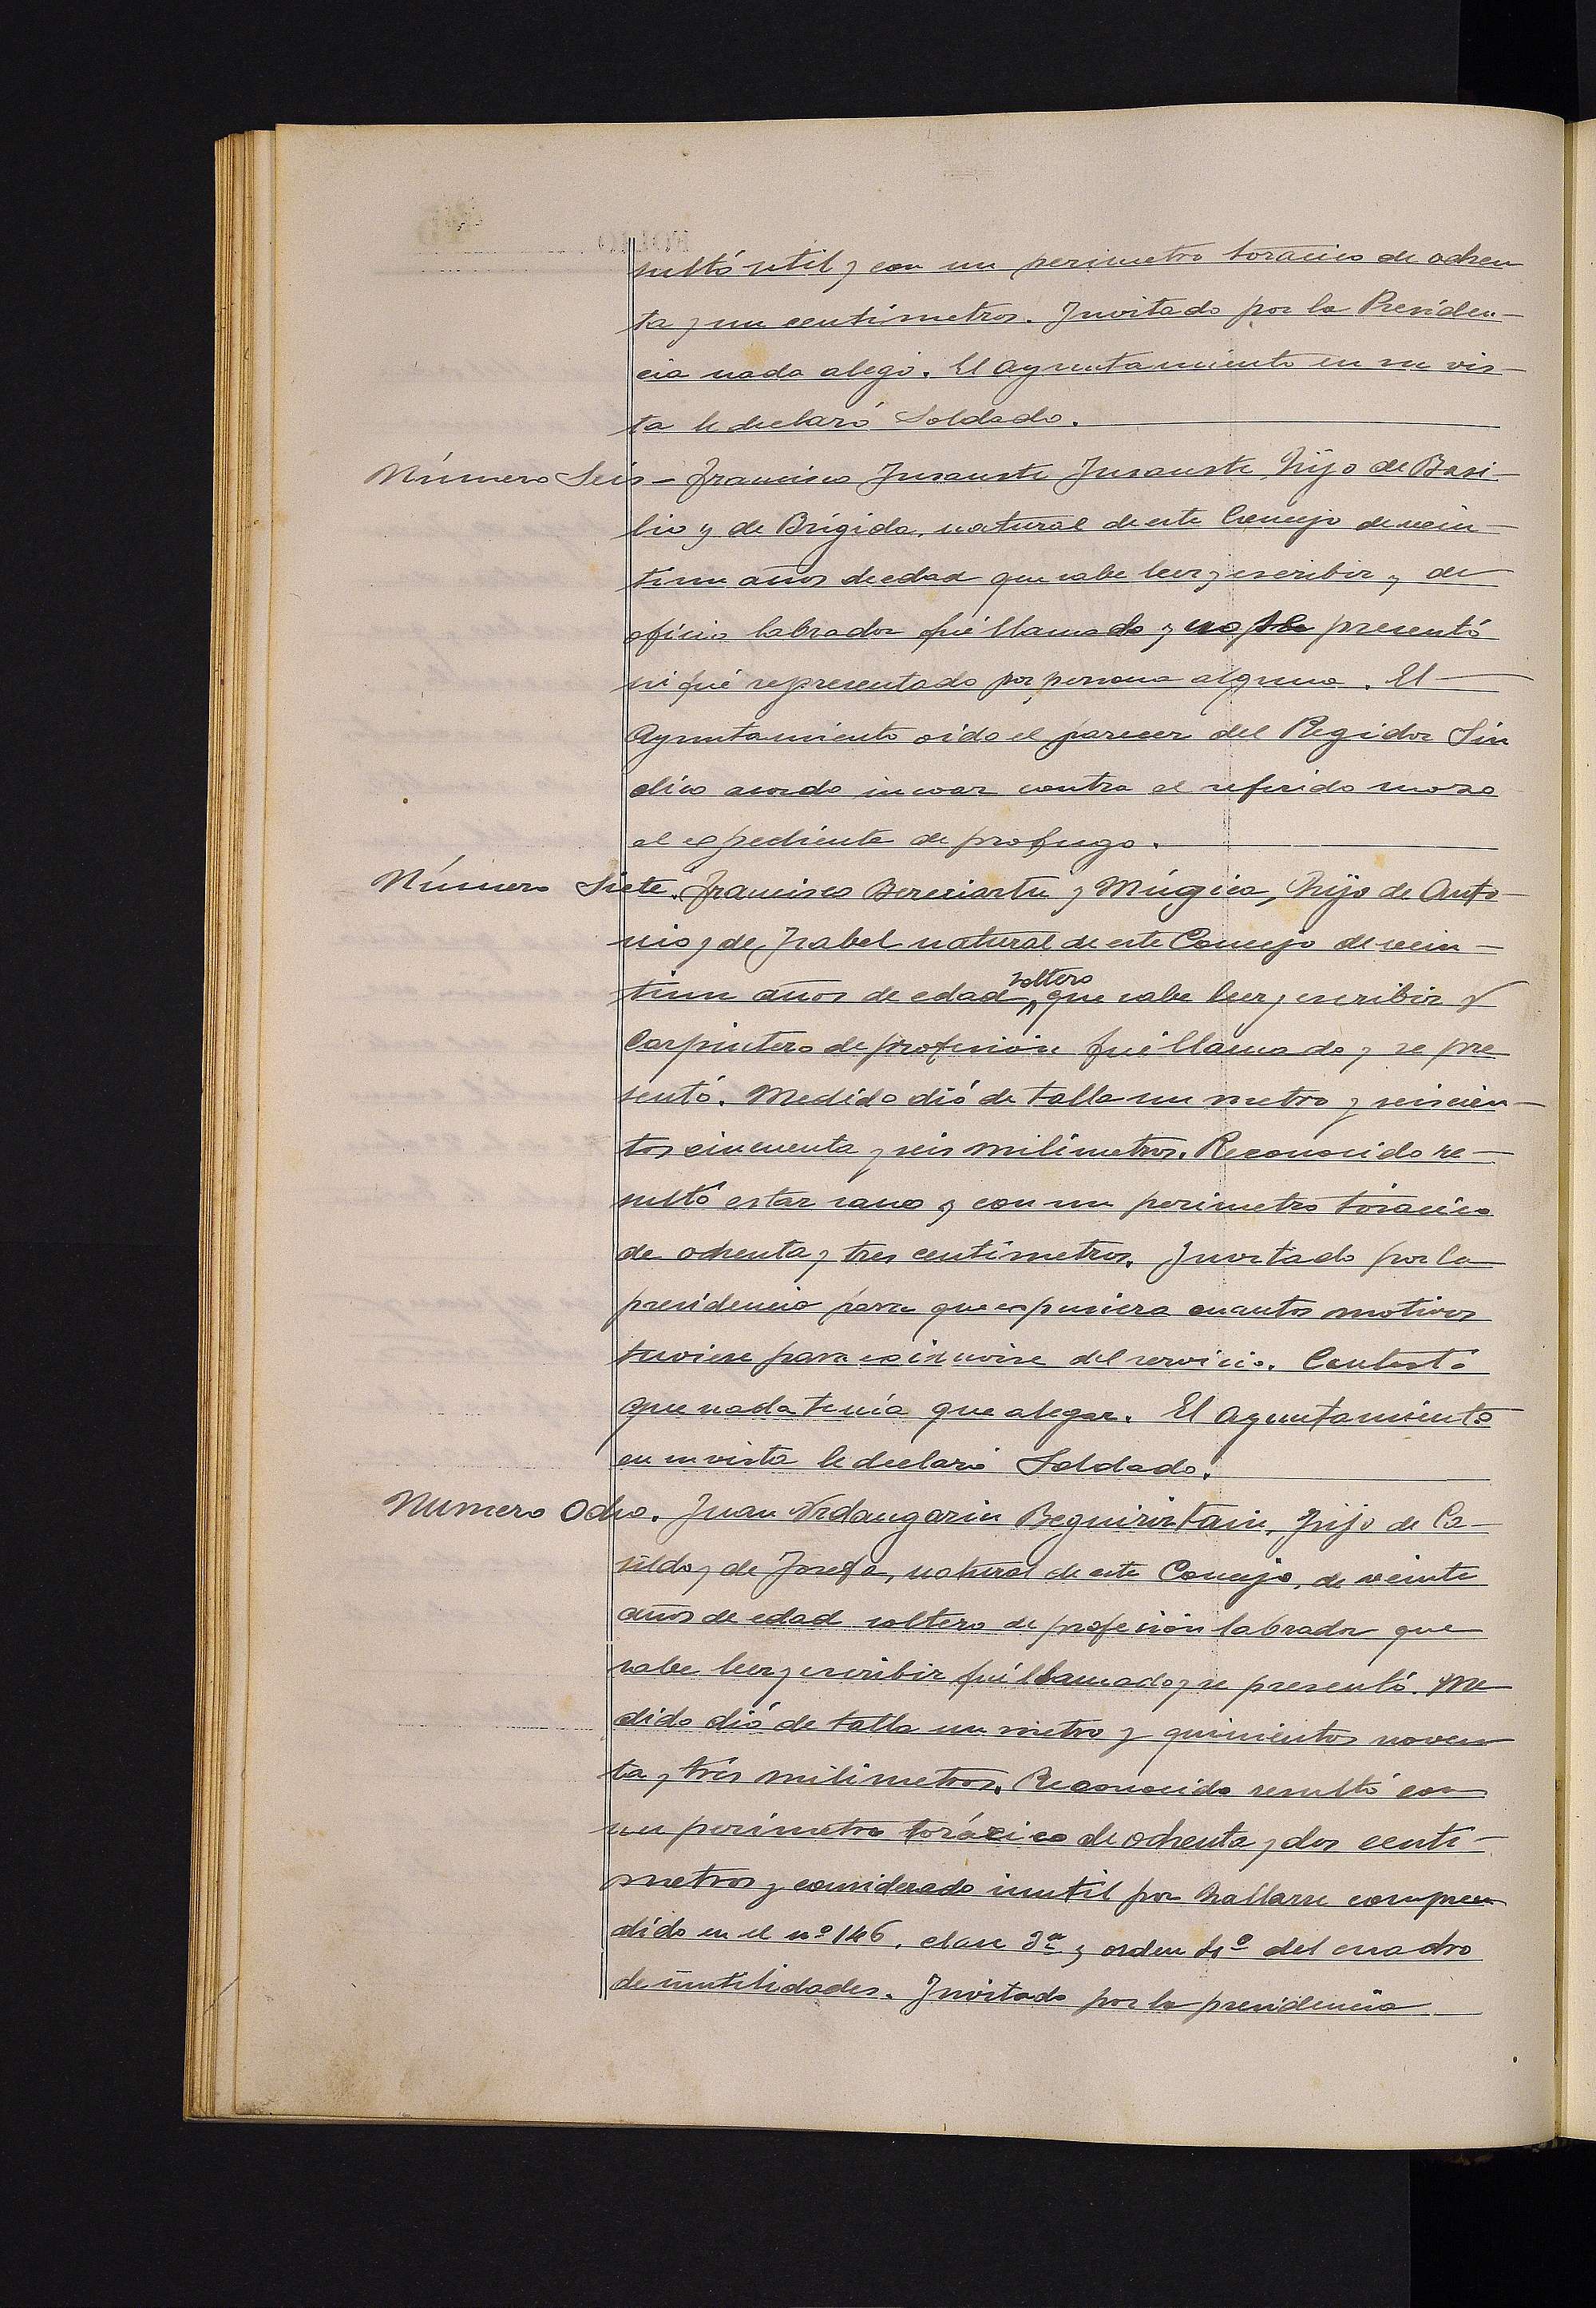 sultó util y con un perimetro toracico de ochen
ta y un centimetros. Invitado por la Presiden-
cia nada alegó. El Ayuntamiento en su vis-
ta le declaró Soldado.
Número Seis - Francisco Insausti Insausti, hijo de Basi-
lio y de Brigida, natural de este Concejo de vein-
tiun años de edad que sabe leer y escribir y de
oficio labrador fué llamado y no se presentó
ni fué representado por persona alguna. El
Ayuntamiento oido el parecer del Regidor Sin
dico acordo incoar contra el referido mozo
el expediente de profugo.
Número Siete. Francisco Bereciartu y Múgica, hijo de Anto-
nio y de Isabel natural de este Concejo de vein-
tiun años de edad soltero que sabe leer y escribir y
Carpintero de profesión fué llamado y se pre
sentó. Medido dió de talla un metro y seiscien-
tos cincuenta y seis milimetros. Reconocido re-
sultó estar sano y con un perimetro tóracico
de ochenta y tres centímetros. Invitado por la
presidencia para que expusiera cuantos motivos
tuviese para eximirse del servicio. Contestó
que nada tenía que alegar. El Ayuntamiento
en su vista le declaró Soldado.
Numero Ocho. Juan Urdangarin Beguiristain, hijo de Ca-
sildo y de Josefa, natural de este Concejo, de veinte
años de edad soltero de profesión labrador que
sabe leer y escribir fué llamado y se presentó. Me
dido dió de talla un metro y quinientos noven
ta y tres milimetros. Reconocido resultó con
un perímetro torácico de ochenta y dos centí-
metros y considerado inutil por hallarse compren
dido en el nº 146, clase 3ª y orden 4º del cuadro
de inutilidades. Invitado por la presidencia